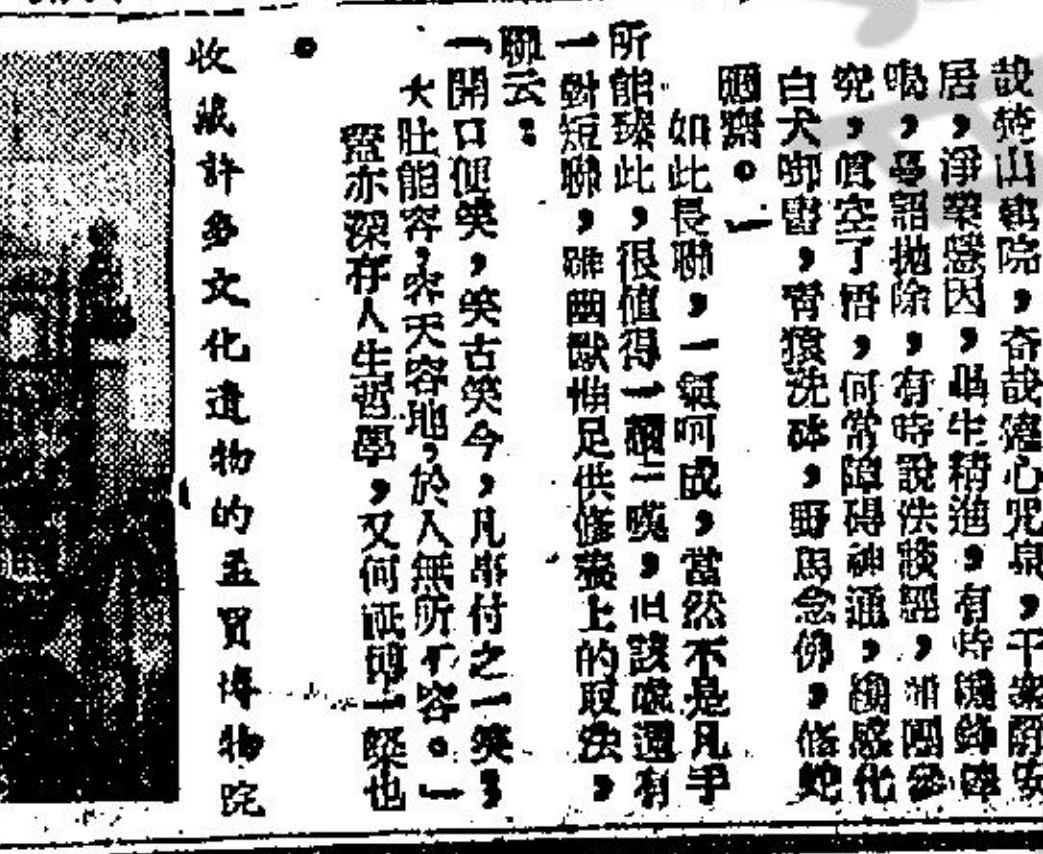 哉梵山院，奇哉心咒泉，安
居，淨業因，生精進，有時機鋒
喝，尋語拋除，有時說法談經，團參
究，真空了悟，何常障碍神通，感化
白犬啣書，青猿洗砵，野馬念佛，修蛇
齋。」
如此長聯，一氣呵成，當然不是凡手
所能臻此，很值得一讀三嘆，但該院還有
一對短聯，雖幽默惟足供修養上的取法，
聯云：
「開口便笑，笑古笑今，凡事付之一笑；
大肚能容，容天容地，於人無所不容。」
亦深存人生哲學，又何一也
。
收藏許多文化遺物的孟買博物院